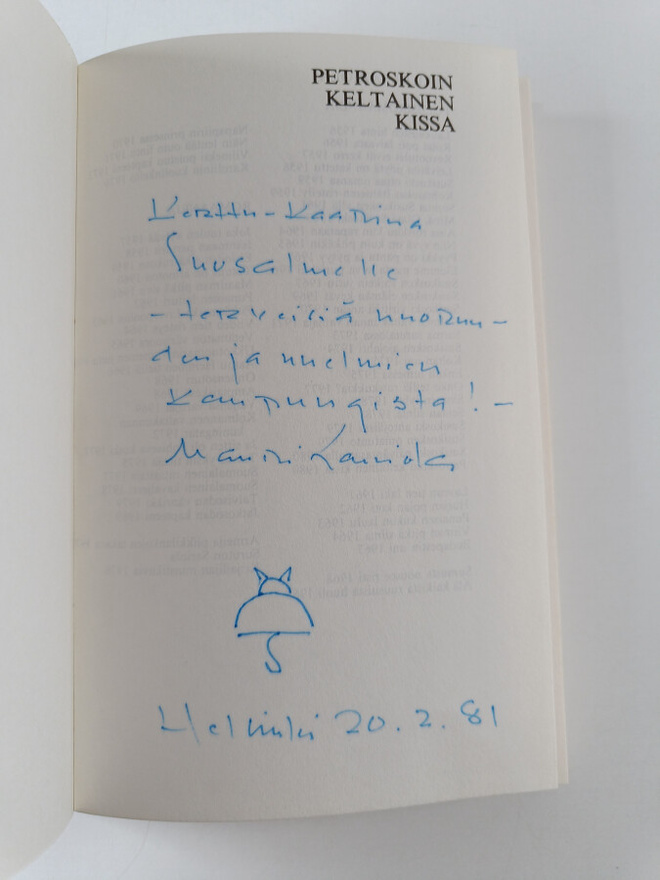 PETROSKOIN
KELTAINEN
KISSA
Kerttu-Kaarina
Suosalmelle
- terveisiä nuoruu-
den ja unelmien
kaupungista! -
Helsinki 20.2.81